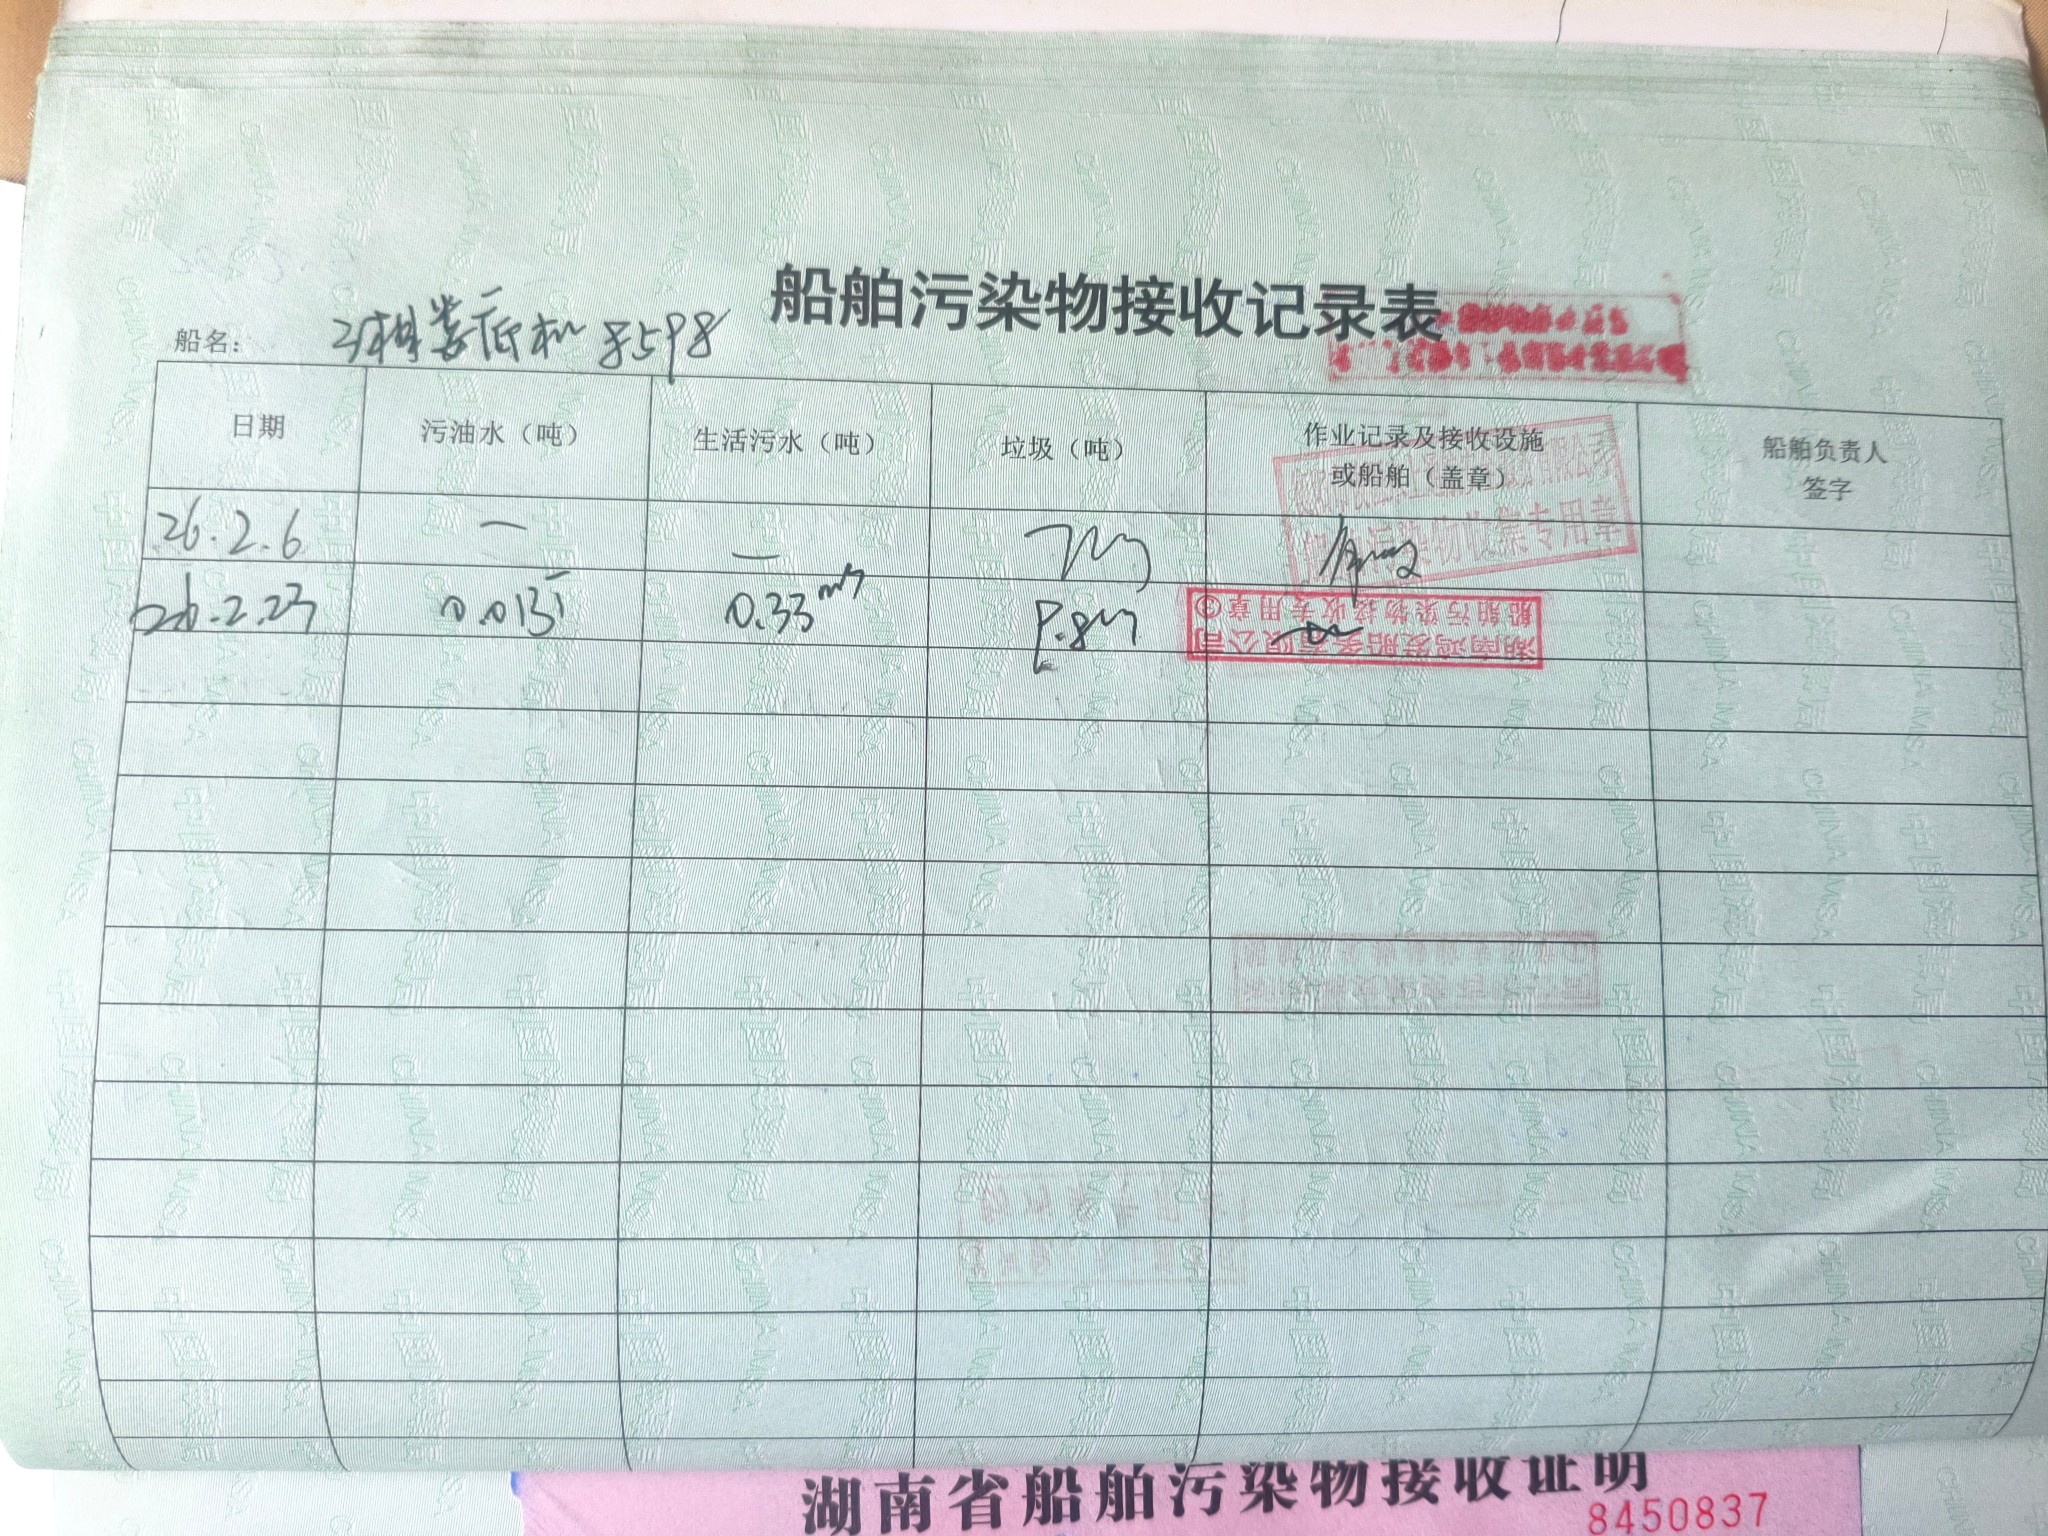 船舶污染物接收记录表
船名： 湘娄底机8598
日期 污油水（吨） 生活污水（吨） 垃圾（吨） 作业记录及接收设施或船舶（盖章） 船舶负责人签字
26.2.6 — —
船舶污染物收集专用章
26.2.23 0.0135 0.33 m³
湖南鸿发船务有限公司
船舶污染物接收专用章①
湖南省船舶污染物接收证明
8450837